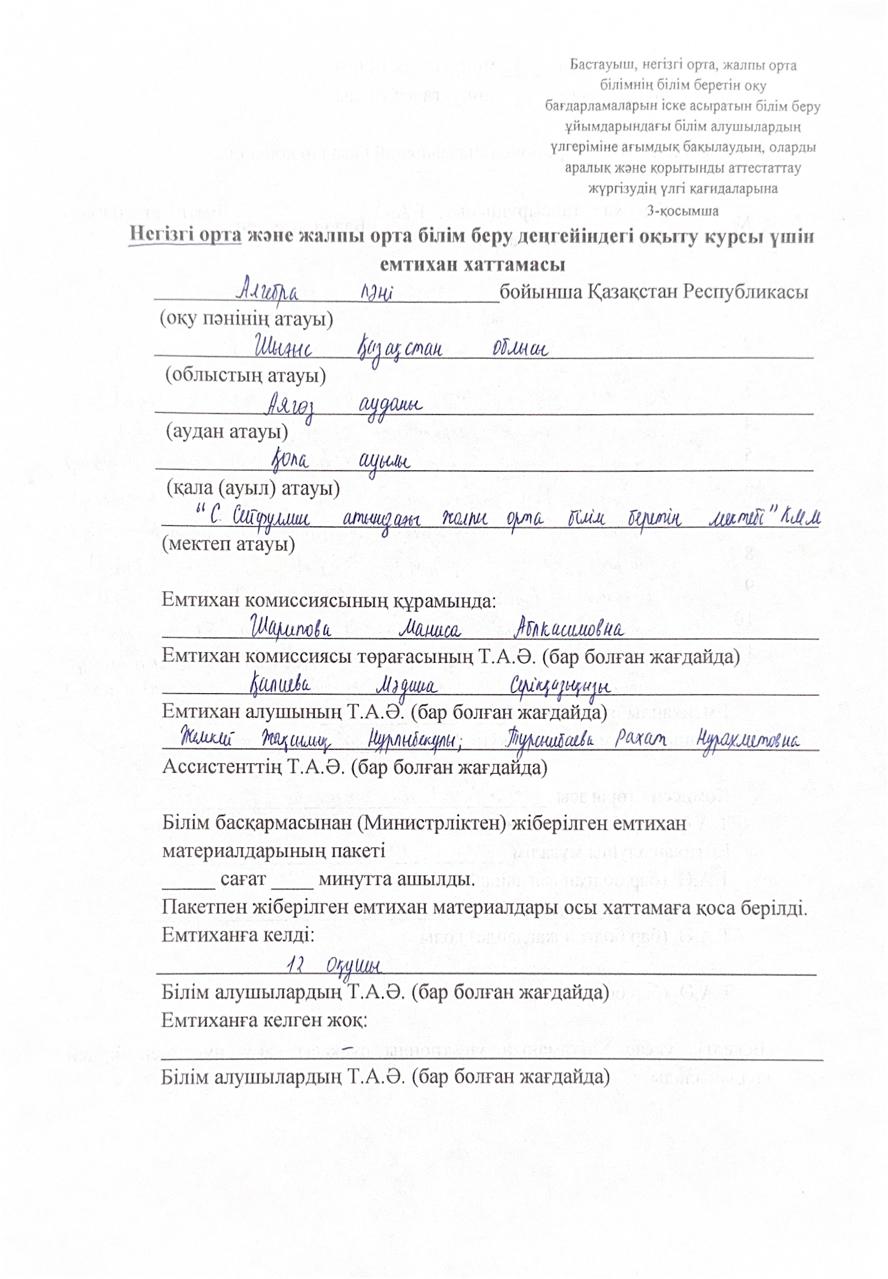 Бастауыш, негізгі орта, жалпы орта
білімнің білім беретін оқу
бағдарламаларын іске асыратын білім беру
ұйымдарындағы білім алушылардың
үлгеріміне ағымдық бақылаудың, оларды
аралық және қорытынды аттестаттау
жүргізудің үлгі қағидаларына
3-қосымша
Негізгі орта және жалпы орта білім беру деңгейіндегі оқыту курсы үшін
емтихан хаттамасы
Алгебра пәні бойынша Қазақстан Республикасы
(оқу пәнінің атауы)
Шығыс Қазақстан облысы
(облыстың атауы)
Аягөз ауданы
(аудан атауы)
Қопа ауылы
(қала (ауыл) атауы)
"С. Сейфуллин атындағы жалпы орта білім беретін мектебі" КММ
(мектеп атауы)
Емтихан комиссиясының құрамында:
Шарипова Абликасимовна
Емтихан комиссиясы төрағасының Т.А.Ә. (бар болған жағдайда)
Қалиева Мәдина Серікқазықызы
Емтихан алушының Т.А.Ә. (бар болған жағдайда)
Нұрлыбекұлы; Турсинбаева Рахат Нурахметовна
Ассистенттің Т.А.Ә. (бар болған жағдайда)
Білім басқармасынан (Министрліктен) жіберілген емтихан
материалдарының пакеті
_____ сағат ____ минутта ашылды.
Пакетпен жіберілген емтихан материалдары осы хаттамаға қоса берілді.
Емтиханға келді:
12 оқушы
Білім алушылардың Т.А.Ә. (бар болған жағдайда)
Емтиханға келген жоқ:
–
Білім алушылардың Т.А.Ә. (бар болған жағдайда)